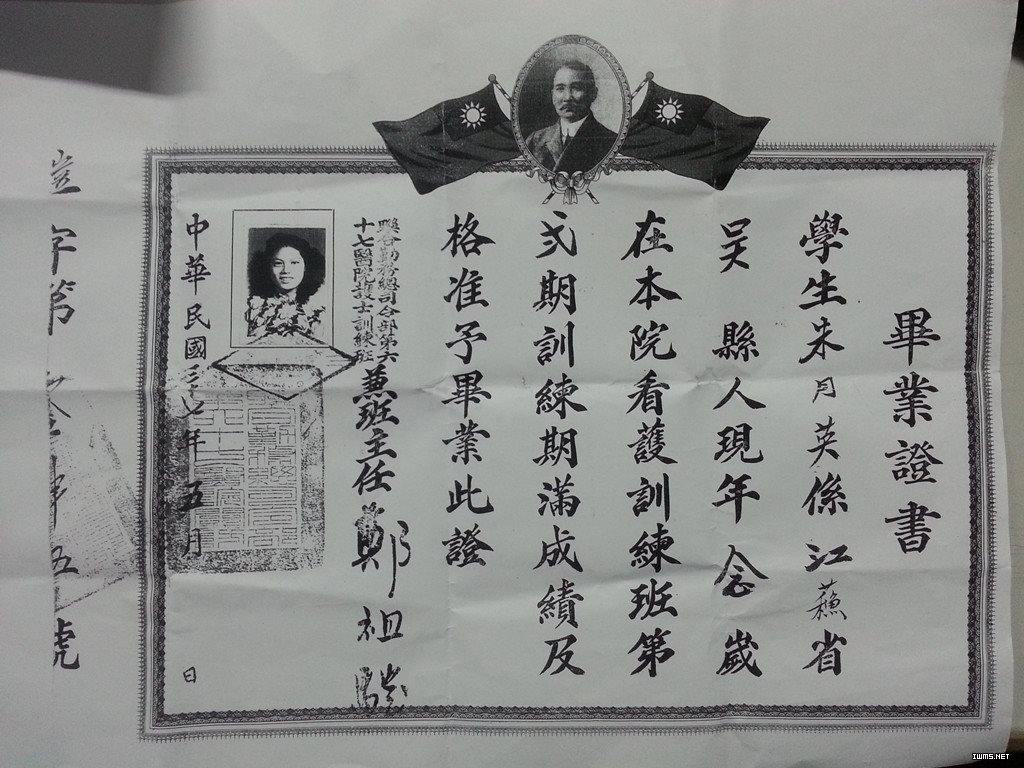 畢業證書
學生朱月英係江蘇省
吳縣人現年念歲
在本院看護訓練班第
弍期訓練期滿成績及
格准予畢業此證
聯合勤務總司令部第六
十七醫院護士訓練班
兼班主任鄭祖
中華民國三七年五月 日
字第 五號
IWMS.NET